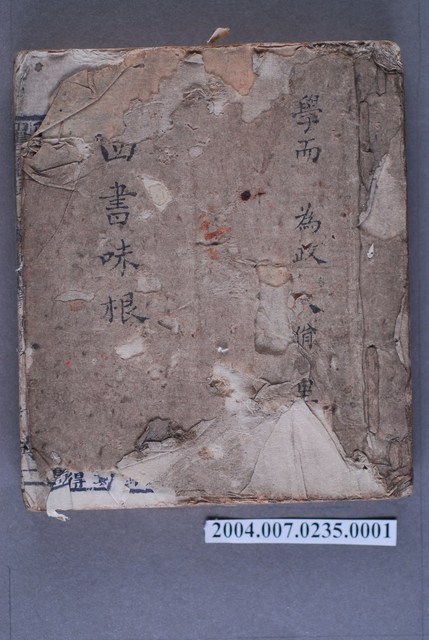 學而 為政 八佾 里
四書味根
得
2004.007.0235.0001